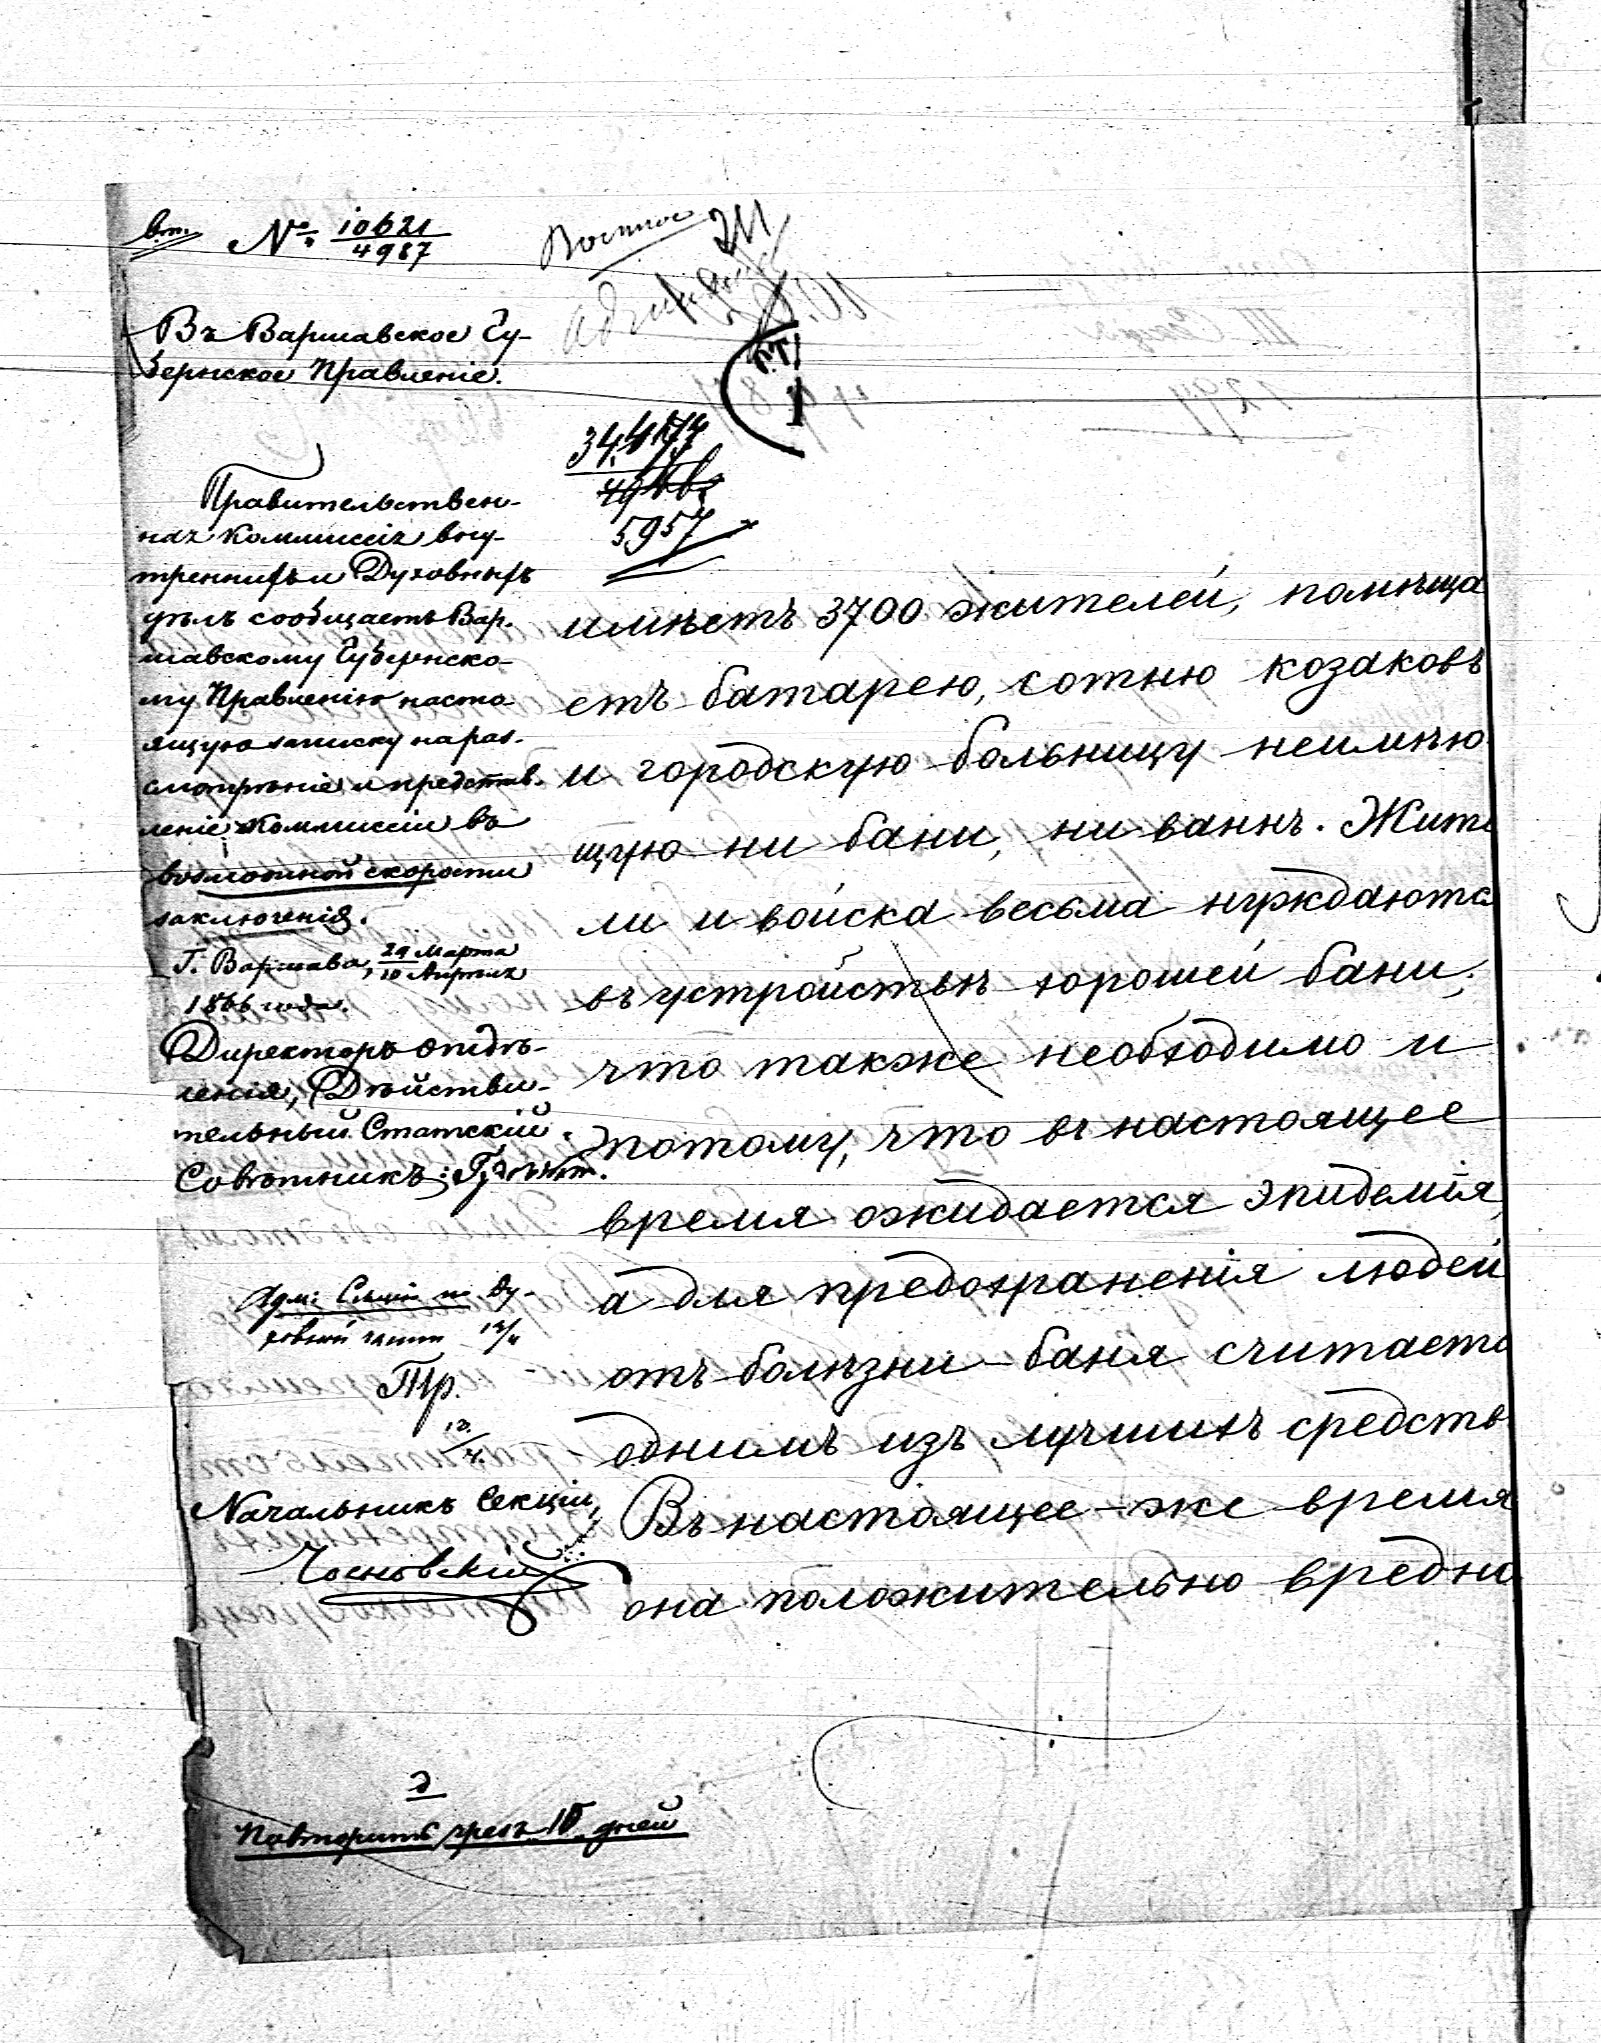 вт. № 10621/4987
Военное
Въ Варшавское Гу-
бернское Правленіе.
5957
Правительствен-
ная Коммиссія вну-
треннихъ и Духовныхъ
дѣлъ сообщаетъ Вар-
шавскому Губернско-
му Правленію насто-
ящую записку на раз-
смотрѣніе и представ-
леніе Коммиссіи въ
возможной скорости
заключенія.
Г. Варшава, 29 Марта/10 Апрѣля
1866 года.
Директоръ отдѣ-
ленія, Дѣйстви-
тельный Статскій
Совѣтникъ:
Адм: Секціи по Ду-
ховной части 12/4
12/4.
Начальникъ Секціи,
Повторить чрезъ 10 дней
имѣетъ 3700 жителей, помѣща
етъ батарею, сотню козаковъ
и городскую больницу неимѣю
щую ни бани, ни ваннъ. Жите
ли и войска весьма нуждаются
въ устройствѣ хорошей бани,
что также необходимо и
потому, что въ настоящее
время ожидается эпидемія,
а для предохраненія людей
отъ болѣзни баня считается
однимъ изъ лучшихъ средствъ
Въ настоящее-же время
она положительно вредна